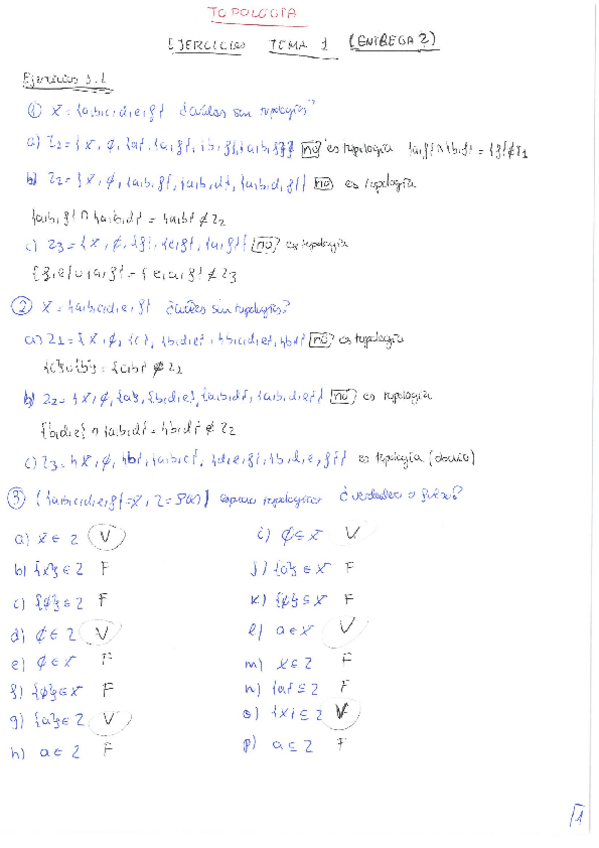 TOPOLOGÍA
EJERCICIOS TEMA 1 (ENTREGA 2)
Ejercicios 1.1
① X = {a,b,c,d,e,f} ¿cuáles son topologías?
a) τ1 = {X, ∅, {a}, {a,f}, {b,f}, {a,b,f}} no es topología {a,f} ∩ {b,f} = {f} ∉ τ1
b) τ2 = {X, ∅, {a,b,f}, {a,b,d}, {a,b,d,f}} no es topología
{a,b,f} ∩ {a,b,d} = {a,b} ∉ τ2
c) τ3 = {X, ∅, {f}, {e,f}, {a,f}} no es topología
{f,e} ∪ {a,f} = {e,a,f} ∉ τ3
② X = {a,b,c,d,e,f} ¿cuáles son topologías?
a) τ1 = {X, ∅, {c}, {b,d,e}, {b,c,d,e}, {b}} no es topología
{c} ∪ {b} = {c,b} ∉ τ1
b) τ2 = {X, ∅, {a}, {b,d,e}, {a,b,d}, {a,b,d,e}} no es topología
{b,d,e} ∩ {a,b,d} = {b,d} ∉ τ2
c) τ3 = {X, ∅, {b}, {a,b,c}, {d,e,f}, {b,d,e,f}} es topología (obvio)
③ ({a,b,c,d,e,f} = X, τ = P(X)) espacio topológico ¿verdadero o falso?
a) X ∈ τ V
b) {X} ∈ τ F
c) {∅} ⊆ τ F
d) ∅ ∈ τ V
e) ∅ ∈ X F
f) {∅} ∈ X F
g) {a} ∈ τ V
h) a ∈ τ F
i) ∅ ⊆ X V
j) {a} ∈ X F
k) {∅} ⊆ X F
l) a ∈ X V
m) X ⊆ τ F
n) {a} ⊆ τ F
o) {X} ⊆ τ V
p) a ⊆ τ F
1